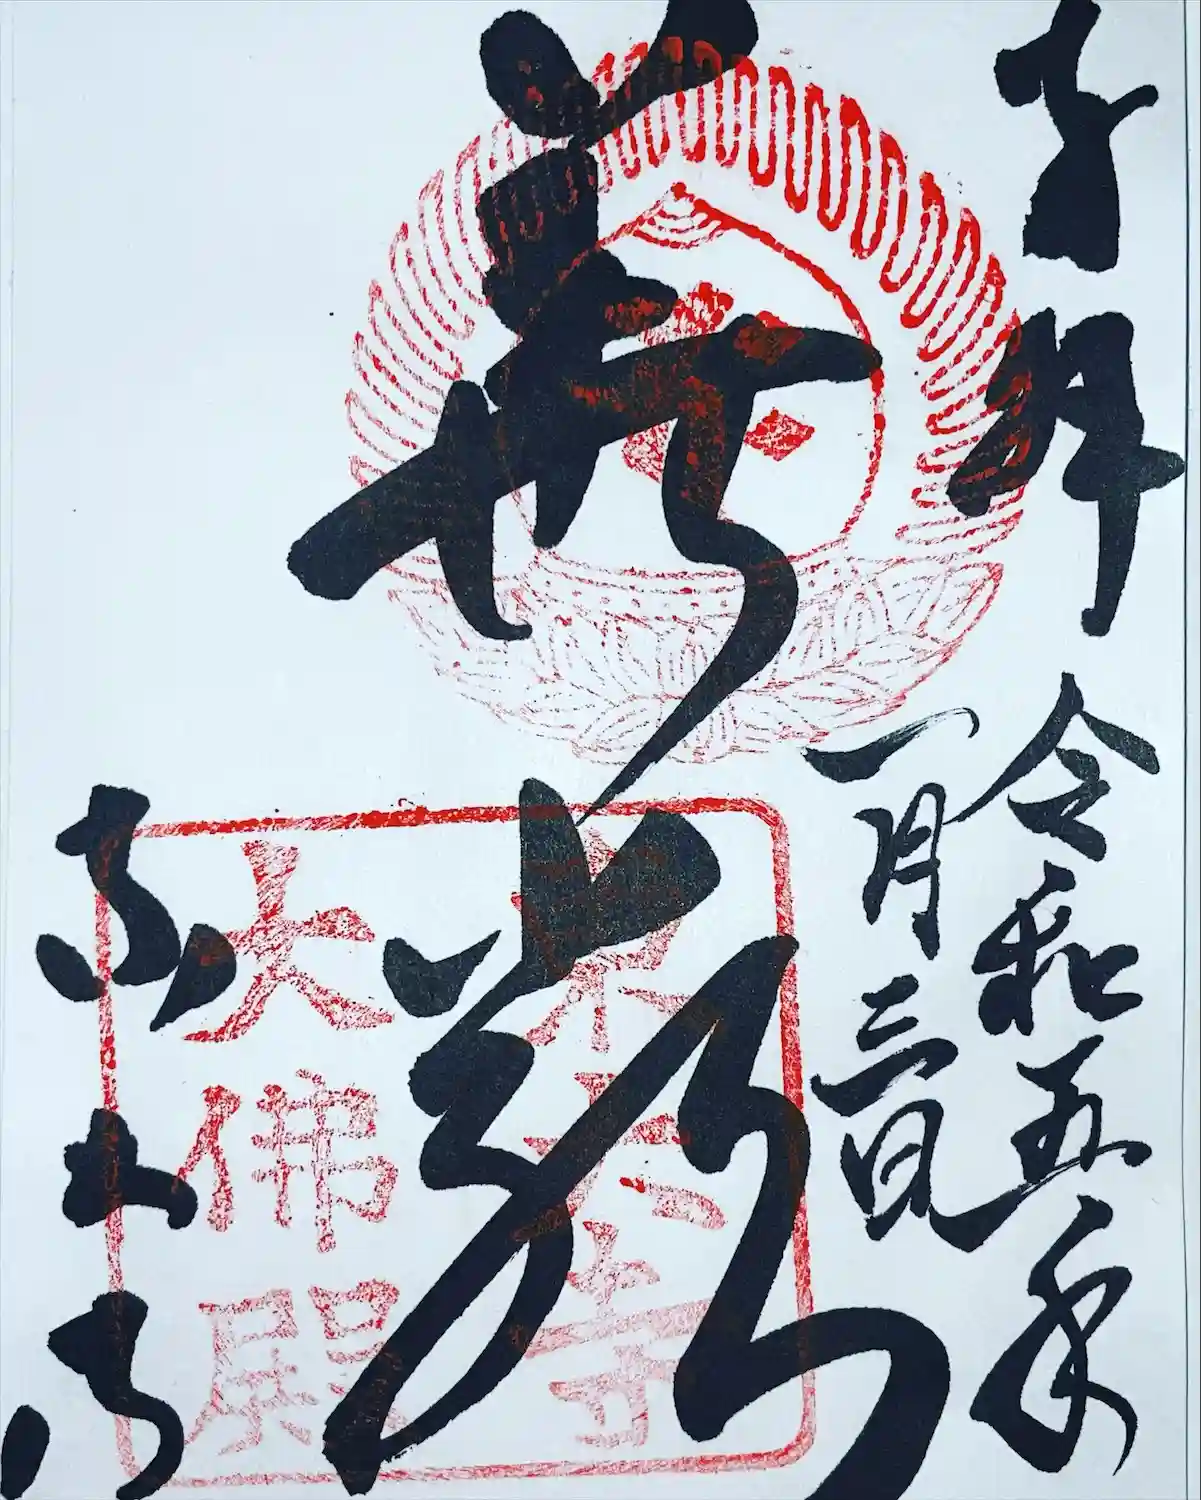 奉拝
令和五年
一月三日
華厳
東大寺
東大寺
大佛殿